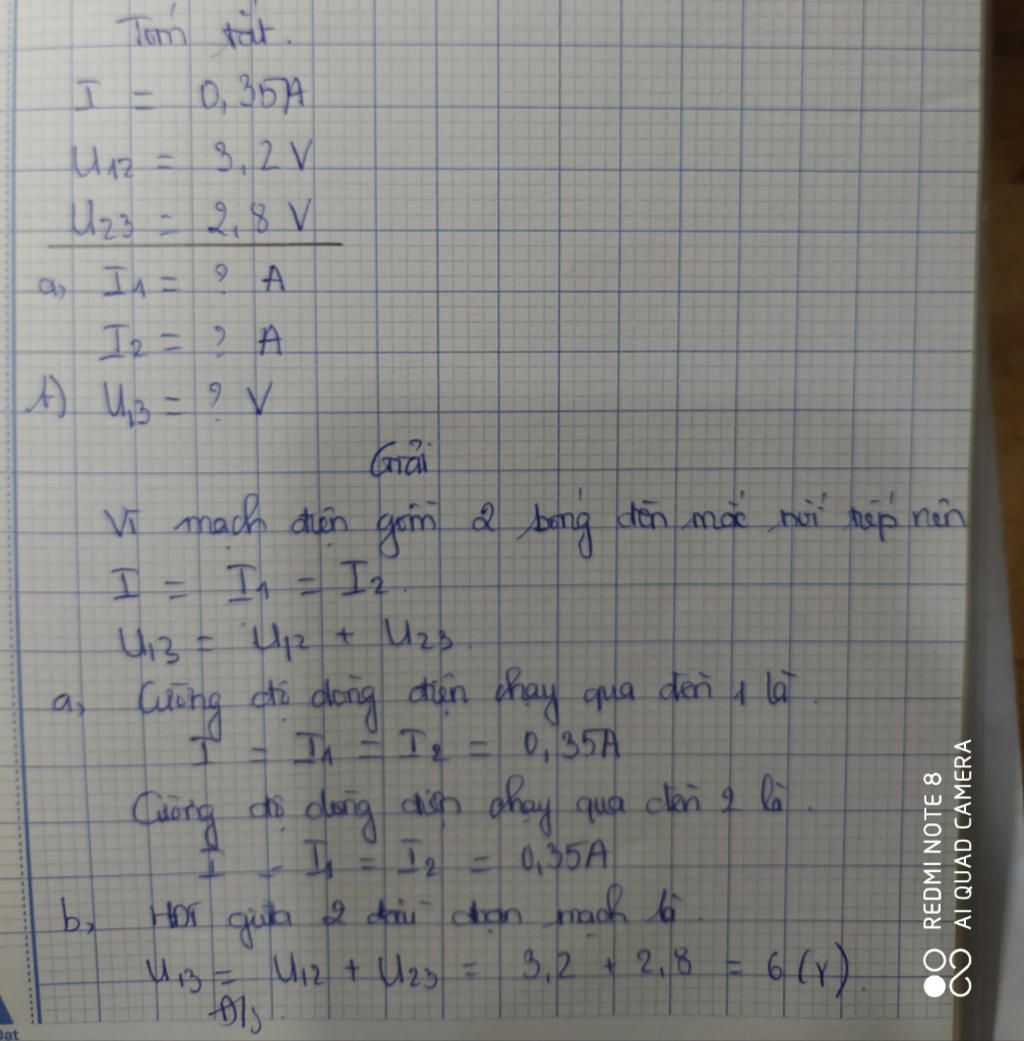 Tóm tắt.
I = 0,35A
U12 = 3,2 V
U23 = 2,8 V
a, I1 = ? A
I2 = ? A
b) U13 = ? V
Giải
Vì mạch điện gồm 2 bóng đèn mắc nối tiếp nên
I = I1 = I2.
U13 = U12 + U23.
a, Cường độ dòng điện chạy qua đèn 1 là.
I = I1 = I2 = 0,35A
Cường độ dòng điện chạy qua đèn 2 là.
I = I1 = I2 = 0,35A
b, HĐT giữa 2 đầu đoạn mạch là.
U13 = U12 + U23 = 3,2 + 2,8 = 6 (V).
Đ/s.
REDMI NOTE 8
AI QUAD CAMERA